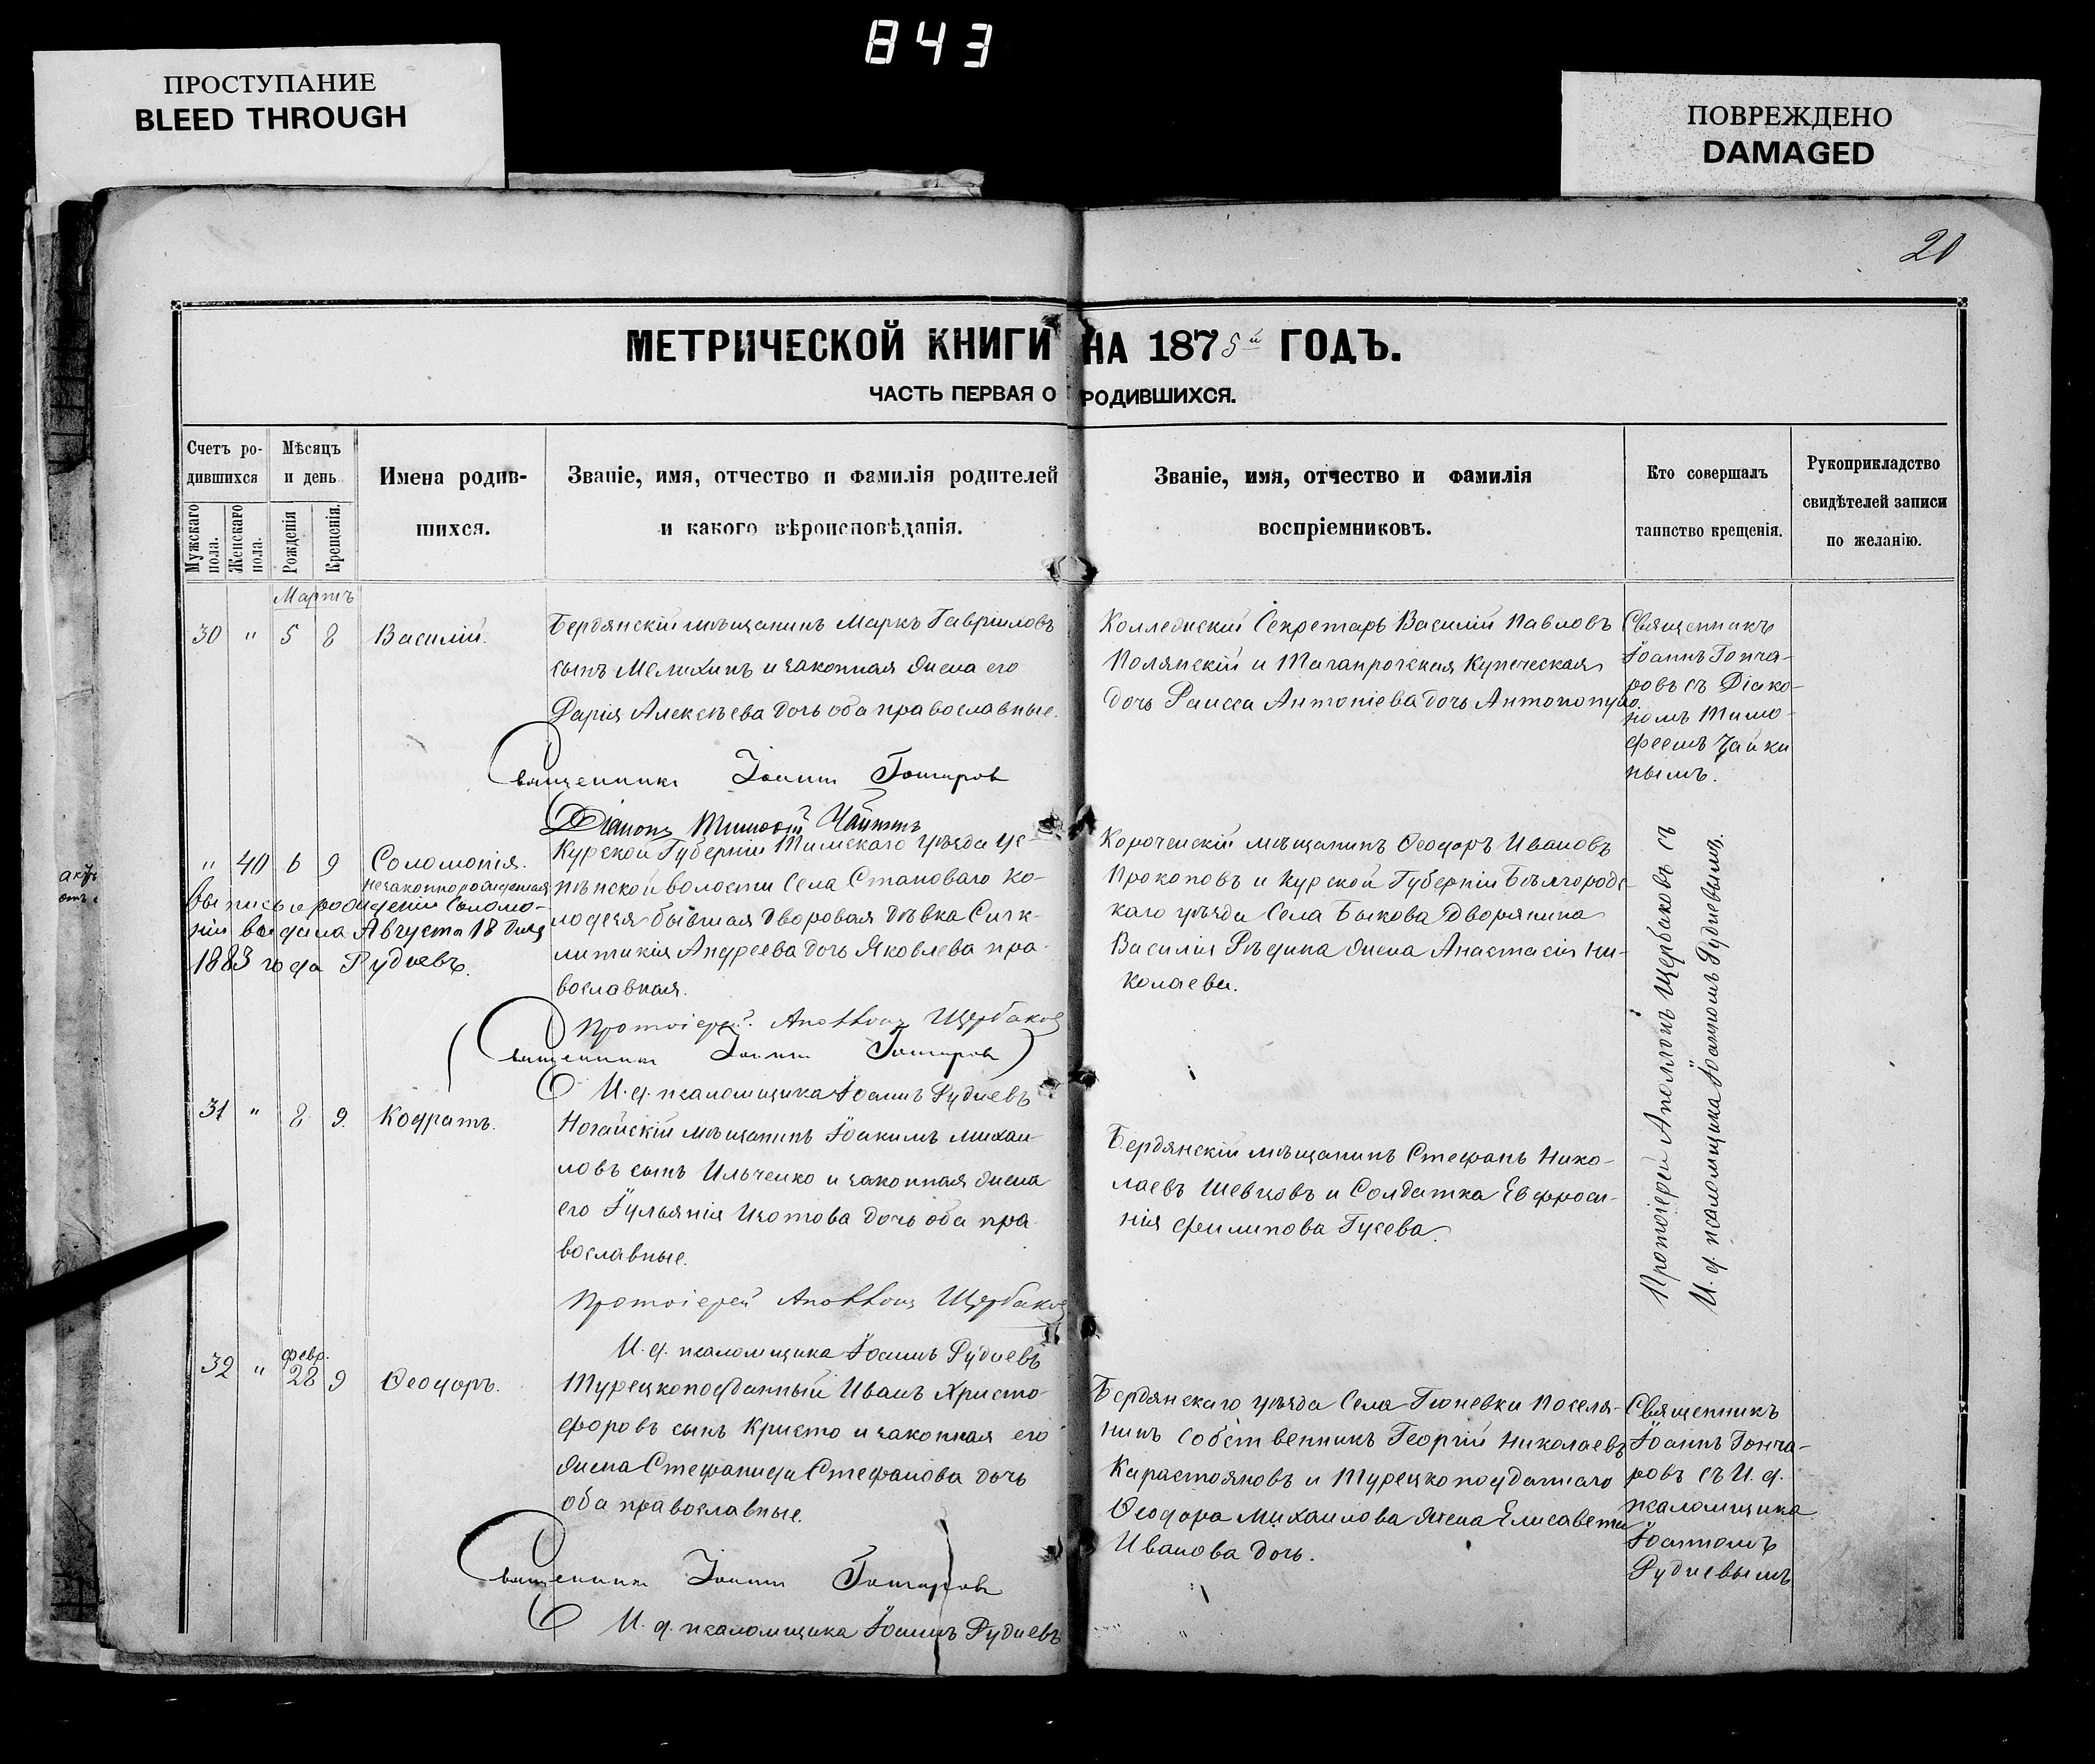 843
ПРОСТУПАНИЕ
BLEED THROUGH
ПОВРЕЖДЕНО
DAMAGED
20
МЕТРИЧЕСКОЙ КНИГИ НА 1875й ГОДЪ.
ЧАСТЬ ПЕРВАЯ О РОДИВШИХСЯ.
Счетъ ро-
дившихся
Мужскаго пола.
Женскаго пола.
Мѣсяцъ
и день
Рожденія
Крещенія.
Имена родив-
шихся.
Званіе, имя, отчество и фамилія родителей
и какого вѣроисповѣданія.
Званіе, имя, отчество и фамилія
воспріемниковъ.
Кто совершалъ
таинство крещенія.
Рукоприкладство
свидѣтелей записи
по желанію.
Мартъ
30 " 5 8 Василій.
Бердянскій мѣщанинъ Маркъ Гавриловъ
сынъ Мелихинъ и законная жена его
Дарія Алексѣева дочь оба православные.
Священникъ Іоаннъ Гончаровъ
Діаконъ Тимофей Чайкинъ
Коллежскій Секретарь Василій Павловъ
Полянскій и Таганрогская Купеческая
дочь Раисса Антоніева дочь Антонопуло.
Священникъ
Іоаннъ Гонча-
ровъ съ Діако-
номъ Тимо-
феемъ Чайки
нымъ.
" 40 6 9 Соломонія.
незаконнорожденная
Выпись о рожденіи Соломо-
ніи выдана Августа 18 дня
1883 года Рудневъ.
Курской Губерніи Тимскаго уѣзда Ус-
пѣнской волости Села Становаго Ко-
лодезя бывшая дворовая дѣвка Сигк-
литикія Андреева дочь Яковлева пра-
вославная.
Протоіерей Аполлонъ Щербаковъ
(Священникъ Іоаннъ Гончаровъ)
И. д. псаломщика Іоаннъ Рудневъ
Короченскій мѣщанинъ Ѳеодоръ Ивановъ
Прокоповъ и Курской Губерніи Бѣлгородс-
каго уѣзда Села Быкова Дворянина
Василія Рѣдина жена Анастасія Ни-
колаева.
Протоіерей Аполлонъ Щербаковъ съ
И. д. псаломщика Іоанномъ Рудневымъ.
31 " 8 9 Кодратъ.
Ногайскій мѣщанинъ Іоакимъ Михаи-
ловъ сынъ Ильченко и законная жена
его Іульянія Изотова дочь оба пра-
вославные.
Протоіерей Аполлонъ Щербаковъ
И. д. псаломщика Іоаннъ Рудневъ
Бердянскій мѣщанинъ Стефанъ Нико-
лаевъ Шевцовъ и Солдатка Евфроси-
нія Филипова Гусева.
февр.
32 " 28 9 Ѳеодоръ.
Турецкоподданный Иванъ Христо-
форовъ сынъ Кристо и законная его
жена Стефанида Стефанова дочь
оба православные.
Священникъ Іоаннъ Гончаровъ
И. д. псаломщика Іоаннъ Рудневъ
Бердянскаго уѣзда Села Гюневки Поселя-
нинъ собственникъ Георгій Николаевъ
Карастояновъ и Турецкоподданаго
Ѳеодора Михаилова жена Елисавета
Иванова дочь.
Священникъ
Іоаннъ Гонча-
ровъ съ И. д.
псаломщика
Іоанномъ
Рудневымъ